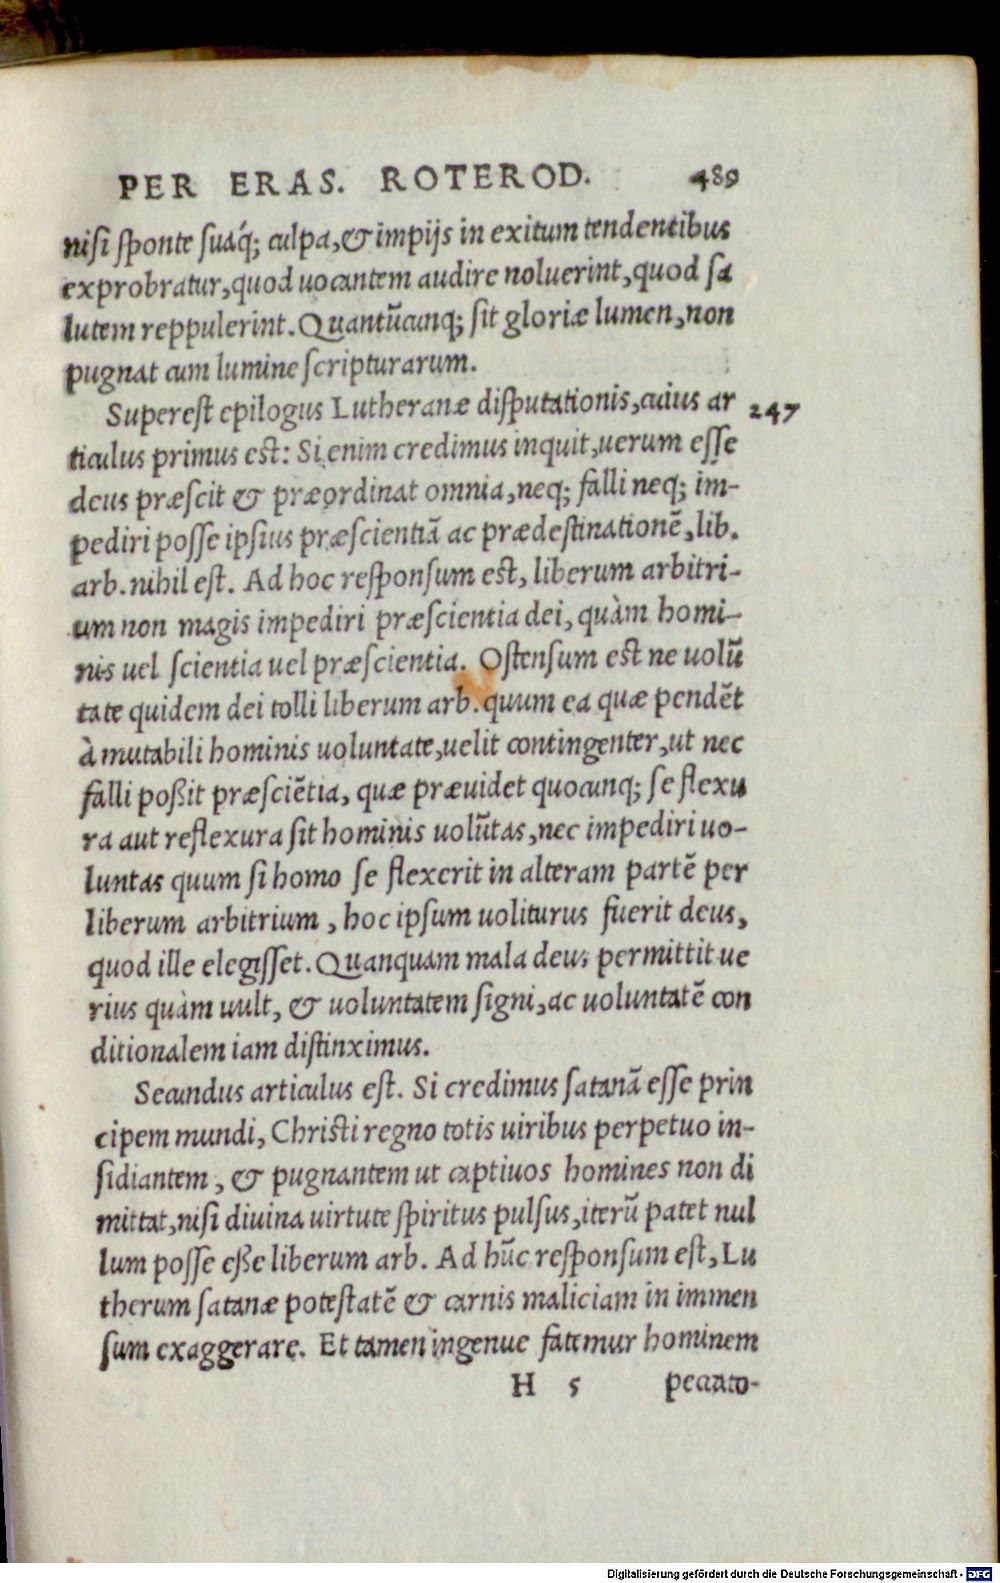 PER ERAS. ROTEROD. 489
nisi sponte suaq́; culpa, & impijs in exitum tendentibus
exprobratur, quod uocantem audire noluerint, quod sa
lutem reppulerint. Quantūcunq; sit gloriæ lumen, non
pugnat cum lumine scripturarum.
Superest epilogus Lutheranæ disputationis, cuius ar 247
ticulus primus est: Si enim credimus inquit, uerum esse
deus præscit & præordinat omnia, neq; falli neq; im-
pediri posse ipsius præscientiā ac prædestinationē, lib.
arb. nihil est. Ad hoc responsum est, liberum arbitri-
um non magis impediri præscientia dei, quàm homi-
nis uel scientia uel præscientia. Ostensum est ne uolū
tate quidem dei tolli liberum arb. quum ea quæ pendēt
à mutabili hominis uoluntate, uelit contingenter, ut nec
falli poßit præsciētia, quæ præuidet quocunq; se flexu
ra aut reflexura sit hominis uolūtas, nec impediri uo-
luntas quum si homo se flexerit in alteram partē per
liberum arbitrium, hoc ipsum uoliturus fuerit deus,
quod ille elegisset. Quanquam mala deus permittit ue
rius quàm uult, & uoluntatem signi, ac uoluntatē con
ditionalem iam distinximus.
Secundus articulus est. Si credimus satanā esse prin
cipem mundi, Christi regno totis uiribus perpetuo in-
sidiantem, & pugnantem ut captiuos homines non di
mittat, nisi diuina uirtute spiritus pulsus, iterū patet nul
lum posse eße liberum arb. Ad hūc responsum est, Lu
therum satanæ potestatē & carnis maliciam in immen
sum exaggerare. Et tamen ingenue fatemur hominem
H 5 peccato-
Digitalisierung gefördert durch die Deutsche Forschungsgemeinschaft - DFG